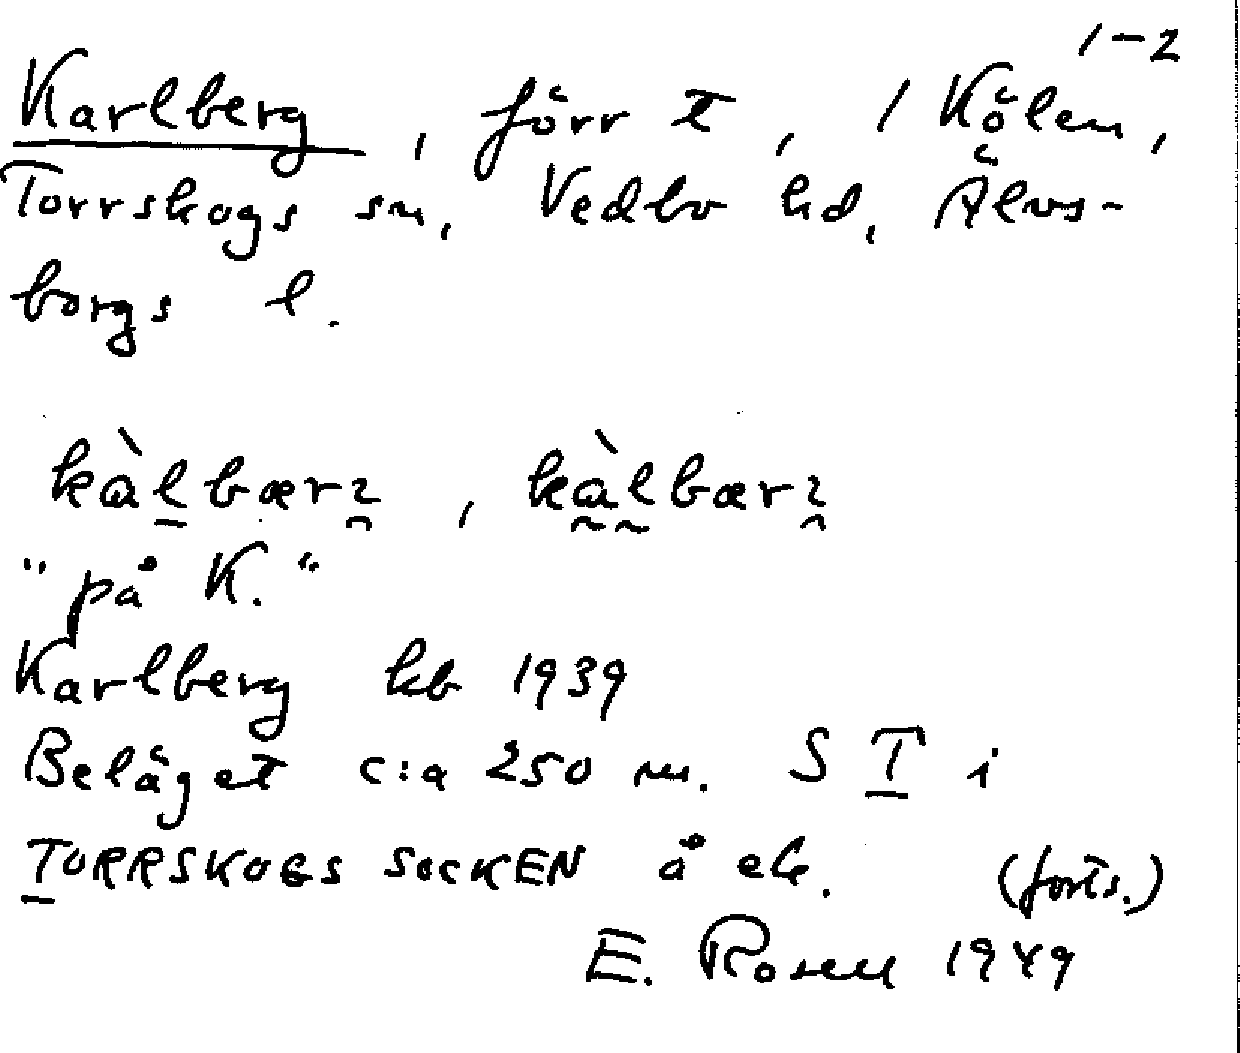 1-2
Karlberg, förr t, 1 Kölen,
Torrskogs sn, Vedbo hd, Älvs-
borgs l.
kàlbærɂ, kàlbærɂ
"på K."
Karlberg kb 1939
Beläget c:a 250 m. S T i
TORRSKOGS SOCKEN å ek.
(forts.)
E. Rosen 1949